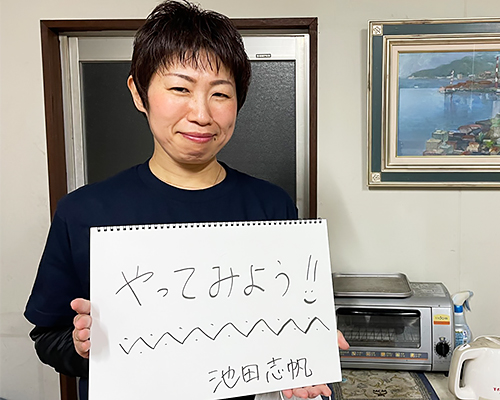 やってみよう!!
池田志帆